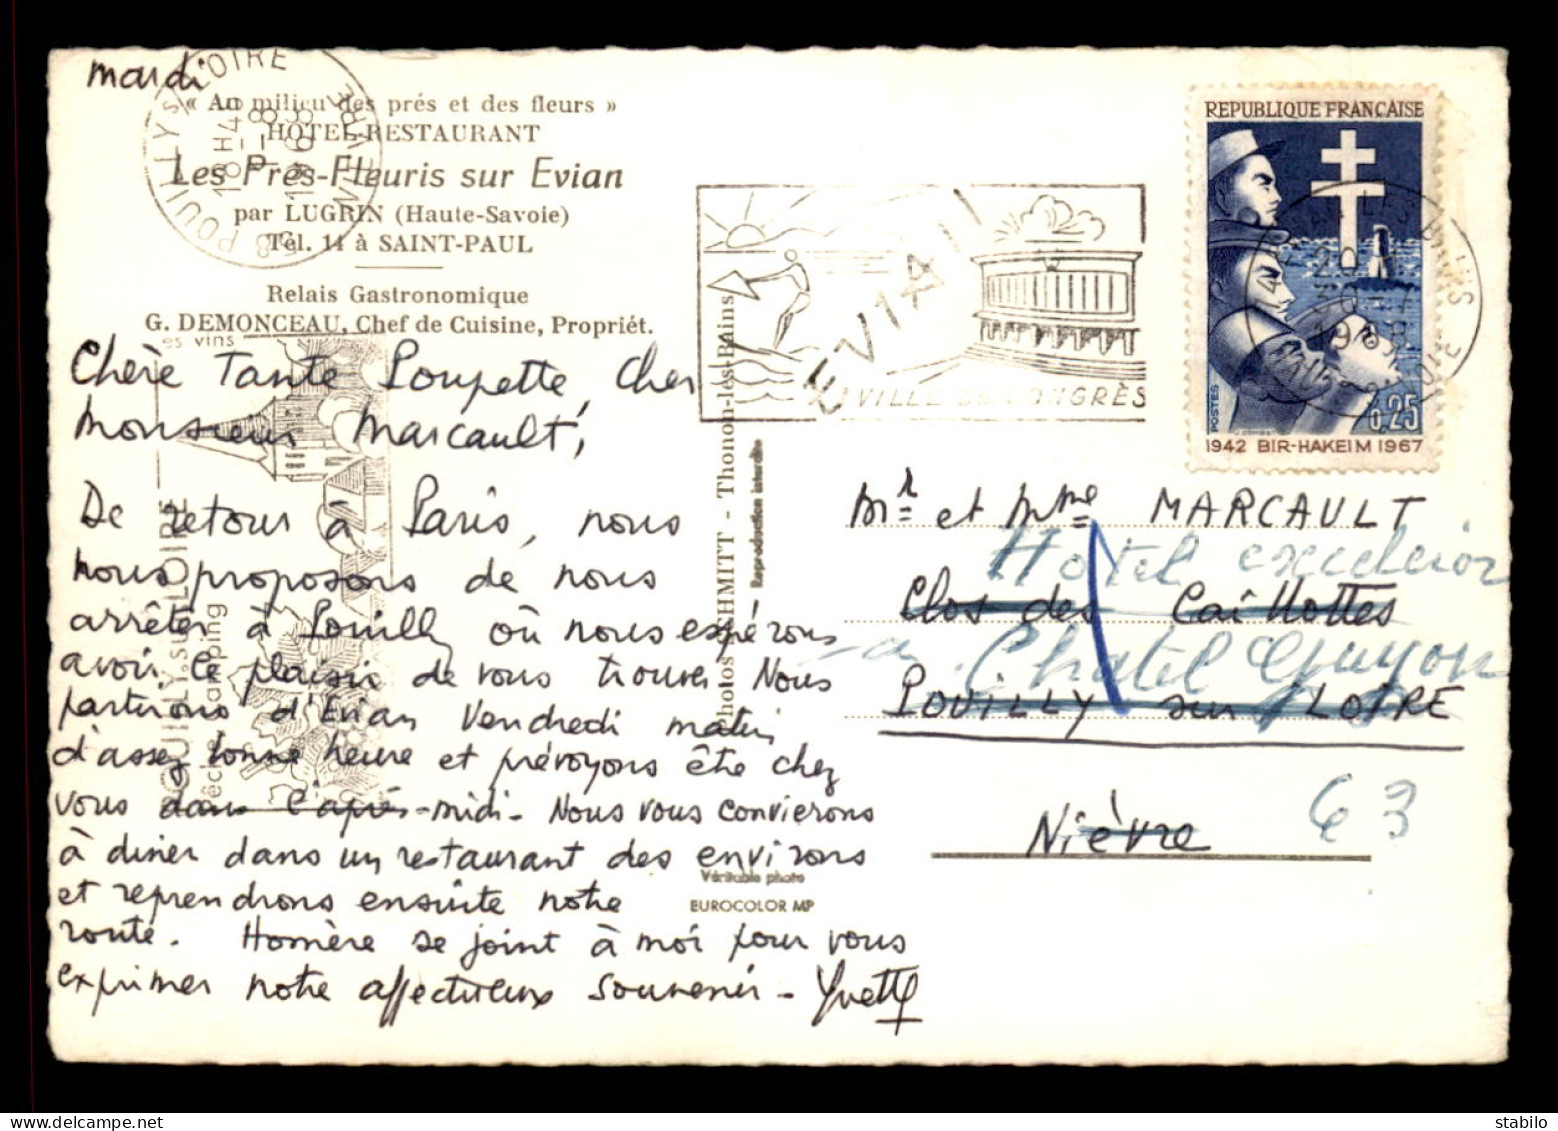 mardi
« Au milieu des prés et des fleurs »
HOTEL-RESTAURANT
Les Prés-Fleuris sur Evian
par LUGRIN (Haute-Savoie)
Tél. 14 à SAINT-PAUL
Relais Gastronomique
G. DEMONCEAU, Chef de Cuisine, Propriét.
POUILLY s/ LOIRE
NIEVRE
18 H 45
1968
Chère Tante Poupette, cher
Monsieur Marcault,
De retour à Paris, nous
nous proposons de nous
arrêter à Pouilly où nous espérons
avoir le plaisir de vous trouver. Nous
partirons d'Evian Vendredi matin
d'assez bonne heure et prévoyons être chez
vous dans l'après-midi. Nous vous convierons
à diner dans un restaurant des environs
et reprendrons ensuite notre
route. Homère se joint à moi pour vous
exprimer notre affectueux souvenir - Yvette
es vins
POUILLY-sur-LOIRE
camping
Photos SCHMITT - Thonon-les-Bains
Reproduction interdite
Véritable photo
EUROCOLOR MP
EVIAN
VILLE DE CONGRÈS
REPUBLIQUE FRANÇAISE
POSTES
0,25
1942 BIR-HAKEIM 1967
Mr et Mme MARCAULT
Hôtel excelsior
Clos des Caillottes
a Chatel Guyon
POUILLY sur LOIRE
Nièvre
63
delcampe.net
stabilo